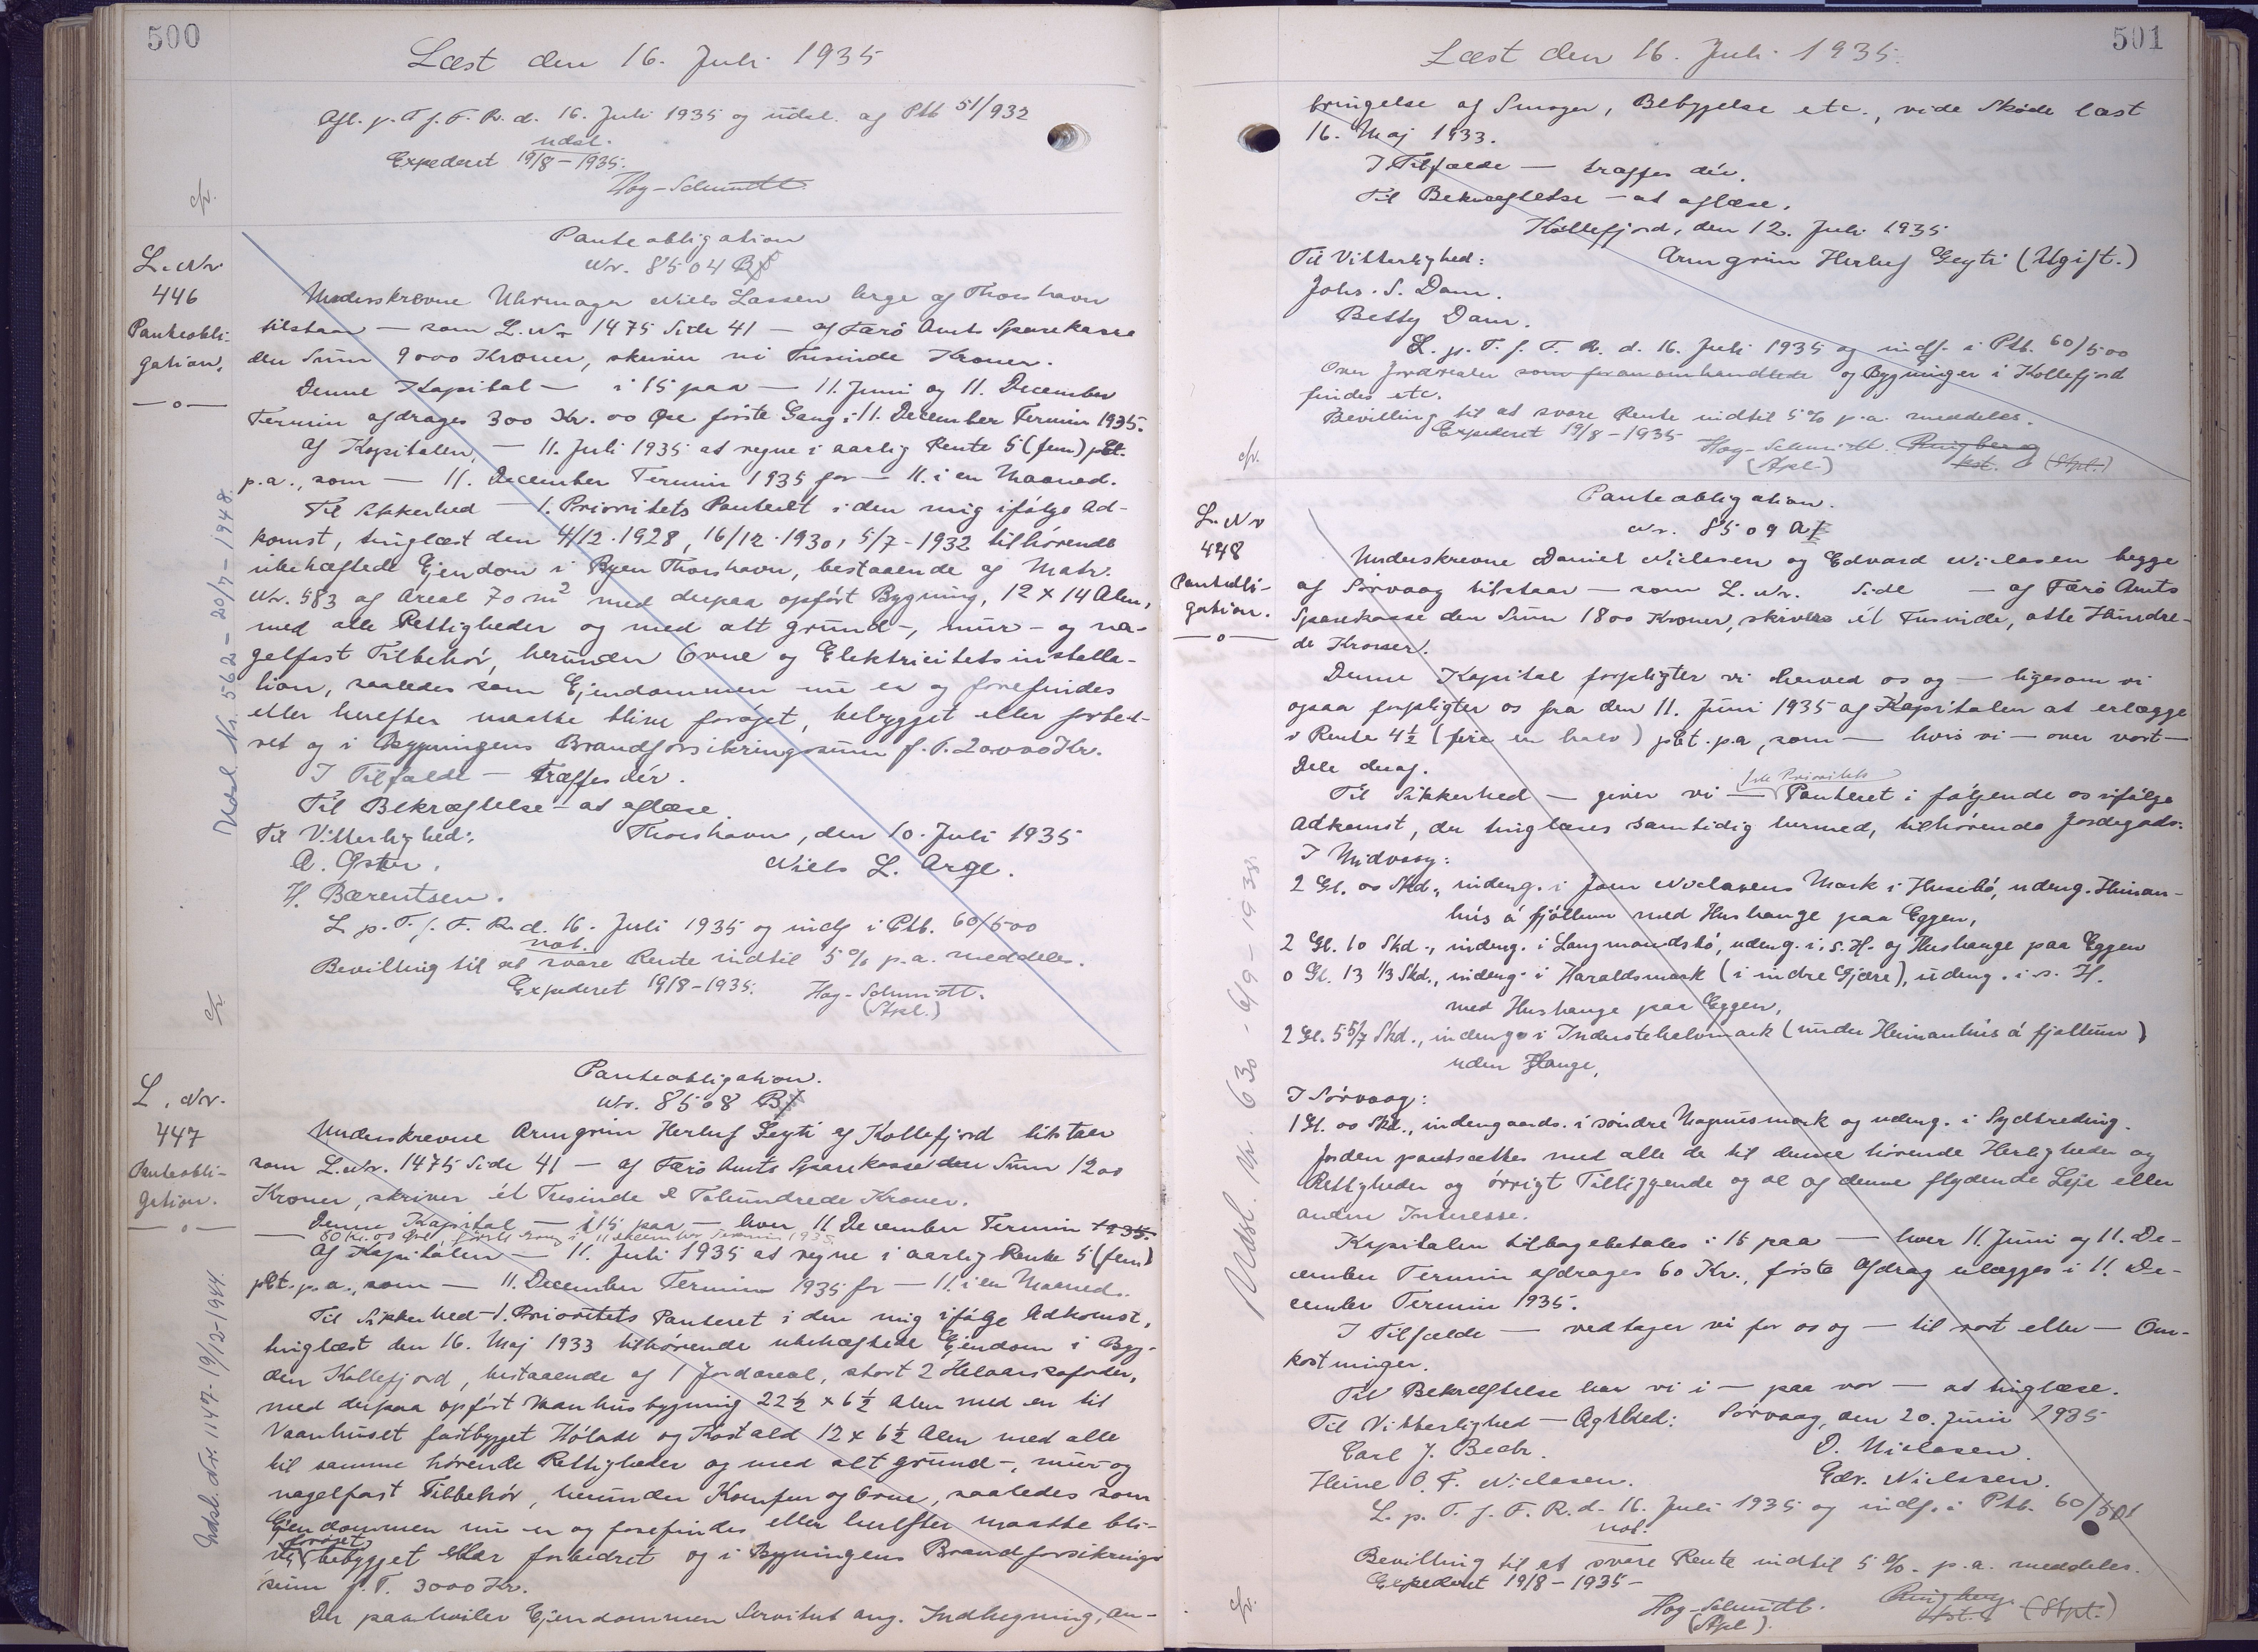 500
Læst den 16. Juli 1935
Afl. p. T. f. F. R. d. 16. Juli 1935 og udsl. af Ptb 51/932
udsl.
Expederet 19/8-1935.
Hag-Schmidt
cfr.
L. Nr
446
Panteobli-
gation.
—o—
Panteobligation
Nr. 8504 B
Underskrevne Uhrmager Niels Lassen Arge af Thorshavn
tilstaar — som L. Nr 1475 Side 41 — af Færø Amts Sparekasse
den Sum 9000 Kroner, skriver ni Tusinde Kroner.
Denne Kapital — i 15 paa — 11. Juni og 11. December
Termin afdrages 300 Kr. 00 Øre første Gang i 11. December Termin 1935.
Af Kapitalen, — 11. Juli 1935 at regne i aarlig Rente 5 (fem) pCt.
p.a., som — 11. December Termin 1935 for — 11. i en Maaned.
Til Sikkerhed — 1. Prioritets Panteret i den mig ifølge Ad-
komst, tinglæst den 4/12-1928, 16/12-1930, 5/7-1932 tilhørende
ubehæftede Ejendom i Byen Thorshavn, bestaaende af Matr.
Nr. 583 af Areal 70 m² med derpaa opført Bygning, 12 x 14 Alen,
med alle Rettigheder og med alt grund-, mur- og na-
gelfast Tilbehør, herunder Ovne og Elektricitetsinstalla-
tion, saaledes som Ejendommen nu er og forefindes
eller herefter maatte blive forøget, bebygget eller forbed-
ret og i Bygningens Brandforsikringssum p. T. 20000 Kr.
I Tilfælde — træffes dér.
Til Bekræftelse — at aflæse.
Til Vitterlighed: Thorshavn, den 10. Juli 1935
A. Øster. Niels L. Arge.
H. Bærentsen.
L. p. T. f. F. R. d. 16. Juli 1935 og indf. i Ptb. 60/500
not.
Bevilling til at svare Rente indtil 5 % p.a. meddeles.
Expederet 19/8-1935. Hag-Schmidt.
(Spl.)
Udsl. Nr. 562 - 20/7-1948.
cfr.
L. Nr.
447
Panteobli-
gation.
—o—
Panteobligation.
Nr. 8508 B
Underskrevne Arngrim Herluf Geyti af Kollefjord tilstaar
som L. Nr. 1475 Side 41 — af Færø Amts Sparekasse den Sum 1200
Kroner, skriver ét Tusinde & Tohundrede Kroner.
Denne Kapital — i 15 paa — hver 11 December Termin 1935.
80 Kr. 00 Øre, første Gang i 11 December Termin 1935
Af Kapitalen — 11. Juli 1935 at regne i aarlig Rente 5 (fem)
pCt. p.a., som — 11. December Termin 1935 for — 11. i en Maaned.
Til Sikkerhed — 1. Prioritets Panteret i den mig ifølge Adkomst,
tinglæst den 16. Maj 1933 tilhørende ubehæftede Ejendom i Byg-
den Kollefjord, bestaaende af 1 Jordareal, stort 2 Helaarskofoder,
med derpaa opført Vaanhusbygning 22½ x 6½ Alen med en til
Vaanhuset fastbygget Hølade og Kostald 12 x 6½ Alen med alle
til samme hørende Rettigheder og med alt grund-, mur- og
nagelfast Tilbehør, herunder Komfur og Ovne, saaledes som
Ejendommen nu er og forefindes eller herefter maatte bli-
forøget
ve, bebygget eller forbedret og i Bygningens Brandforsikrings-
sum p. T. 3000 Kr.
Der paahviler Ejendommen Servitut ang. Indhegning, an-
Udsl. Nr. 1147 - 19/12-1944.
501
Læst den 16. Juli 1935.
bringelse af Smoger, Bebygelse etc., vide Skøde læst
16. Maj 1933.
I Tilfælde — træffes dér.
Til Bekræftelse — at aflæse.
Kollefjord, den 12. Juli 1935
Til Vitterlighed: Arngrim Herluf Geyti (Ugift.)
Johs. S. Dam.
Betty Dam.
L. p. T. f. F. R. d. 16. Juli 1935 og indf. i Ptb. 60/500
Over Jordrealer og Bygninger i Kollefjord
findes etc.
Bevilling til at svare Rente indtil 5% p.a. meddeles.
Expederet 19/8-1935 Hag-Schmidt. Ringberg
(Spl.) kst. (Spl.)
cfr.
L. Nr
448
Panteobli-
gation.
—o—
Panteobligation.
Nr. 8509 A
Underskrevne Daniel Niclasen og Edvard Niclasen begge
af Sørvaag tilstaar — som L. Nr. Side — af Færø Amts
Sparekasse den Sum 1800 Kroner, skriver ét Tusinde, otte Hundre-
de Kroner.
Denne Kapital forpligter vi herved os og — ligesom vi
ogsaa forpligter os fra den 11. Juni 1935 af Kapitalen at erlægge
i Rente 4½ (fire en halv) pCt. p.a., som — hvis vi — over vort —
Dele deraf.
1ste Prioritets
Til Sikkerhed — giver vi — Panteret i følgende os ifølge
Adkomst, der tinglæses samtidig hermed, tilhørende Jordegods:
I Midvaag:
2 Gl. 00 Skd., indeng. i Jom Niclasens Mark i Husebø, udeng. Heiman-
hús á fjøllum med Hushauge paa Eggen,
2 Gl. 10 Skd., indeng. i Langmandsbø, udeng. i. s. H. og Hushauge paa Eggen
0 Gl. 13 1/3 Skd., indeng. i Haraldsmark (i indre Gjære), udeng. i. s. H.
med Hushauge paa Eggen,
2 Gl. 5 5/7 Skd., indeng. i Inderstehelvmark (under Heimanhús á fjøllum)
uden Hauge,
I Sørvaag:
1 Gl. 00 Skd., indengaards. i søndre Magnusmark og udeng. i Sydtreding.
Jorden pantsættes med alle de til denne hørende Herligheder og
Rettigheder og øvrigt Tilliggende og al af denne flydende Leje eller
anden Interesse.
Kapitalen tilbagebetales i 15 paa — hver 11. Juni og 11. De-
cember Termin afdrages 60 Kr., første Afdrag erlægges i 11. De-
cember Termin 1935.
I Tilfælde — vedtager vi for os og — til vort eller — Om-
kostninger.
Til Bekræftelse har vi i — paa vor — at tinglæse.
Til Vitterlighed — Agthed: Sørvaag, den 20. Juni 1935
Carl J. Bech. D. Niclasen.
Heine O. F. Niclasen. Edv. Niclasen.
L. p. T. f. F. R. d. 16. Juli 1935 og indf. i Ptb. 60/501
not.
Bevilling til at svare Rente indtil 5 %. p.a. meddeles.
Expederet 19/8-1935-
Hag-Schmidt. Ringberg
(Spl.) kst. (Spl.)
Udsl. Nr. 630 - 6/9-1938.
cfr.